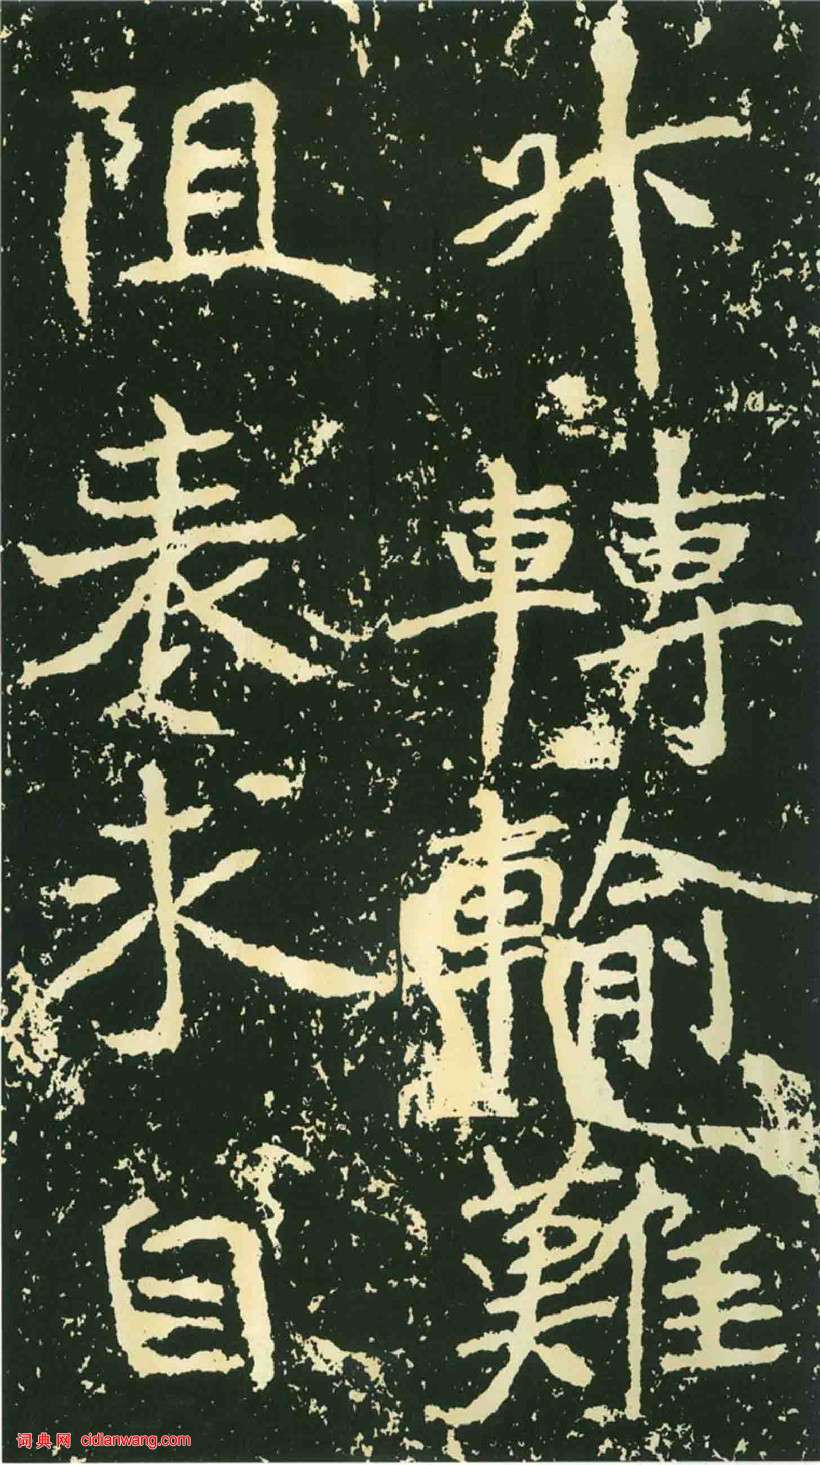 升轉輸難
阻表求自
词典网 cidianwang.com